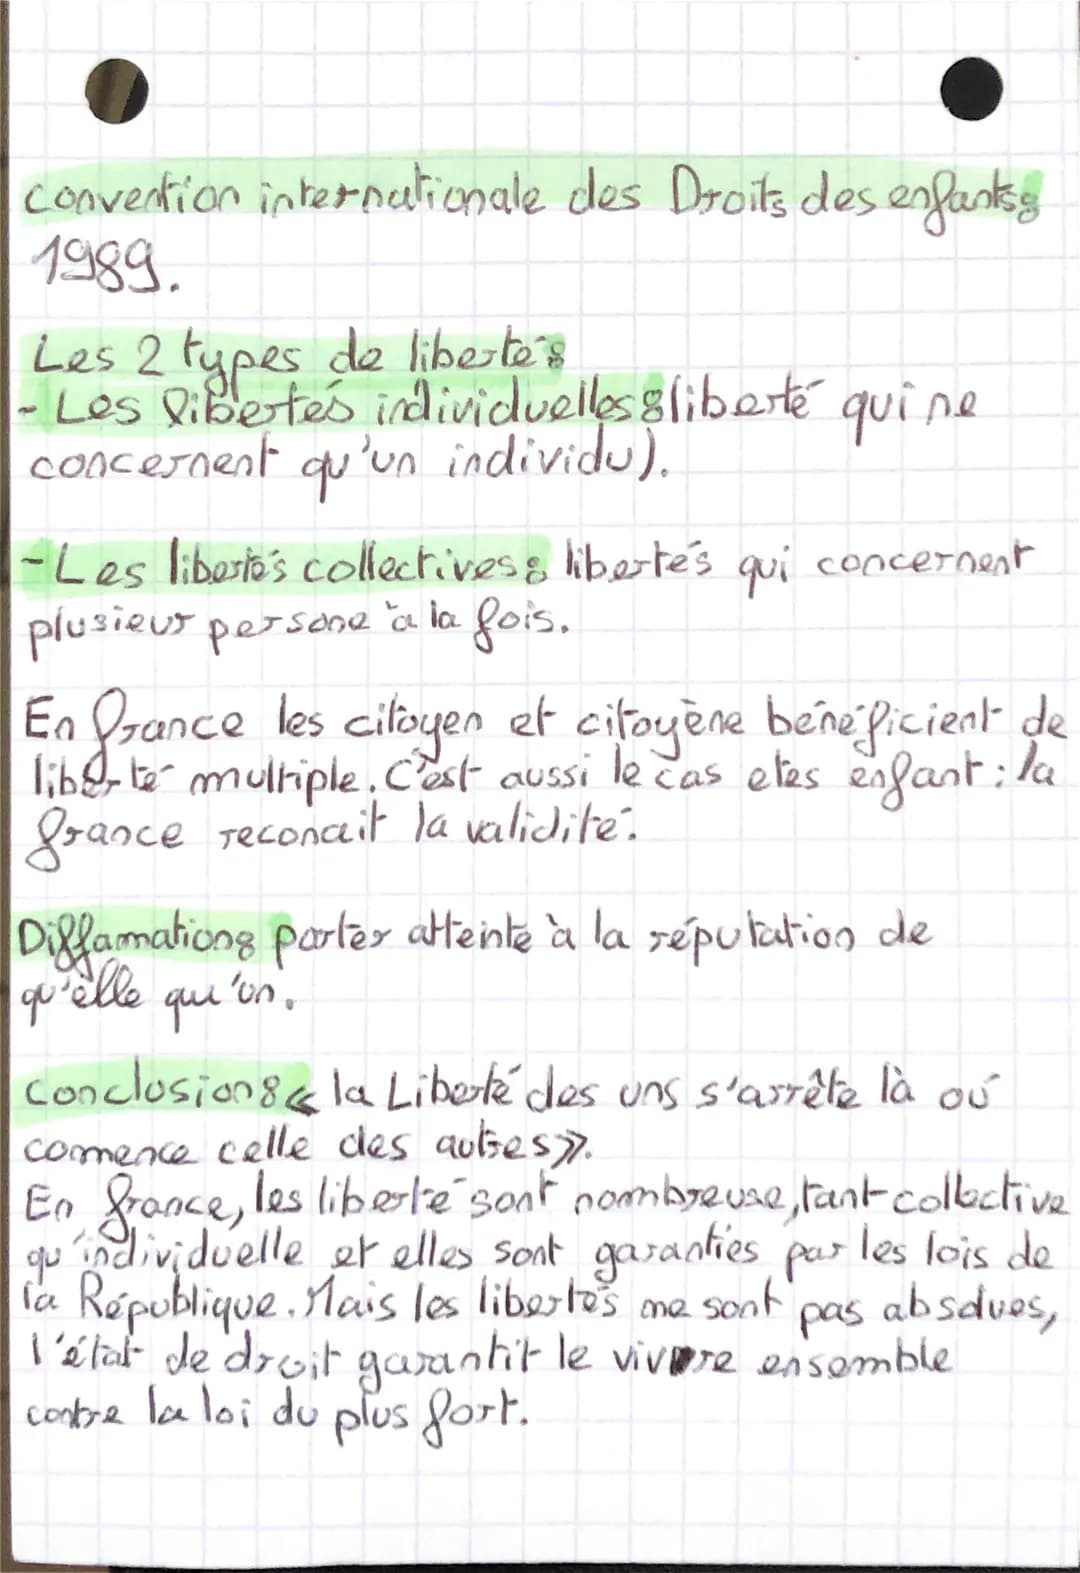 convention internationale des Droits des enfants:
1989.
Les 2 types de libertés:
- Les libertés individuelles: (liberté qui ne
concernent qu'un individu).
- Les libertés collectives: libertés qui concernent
plusieur persone à la fois.
En france les citoyen et citoyène bénéficient de
liberté multiple. C'est aussi le cas des enfant : la
france reconait la validité.
Diffamation: porter atteinte à la réputation de
qu'elle qu'un.
Conclusion: « la Liberté des uns s'arrête là où
comence celle des autres».
En france, les liberté sont nombreuse, tant collective
qu'individuelle et elles sont garanties par les lois de
la République. Mais les libertés ne sont pas absolues,
l'état de droit garantit le vivre ensemble
contre la loi du plus fort.